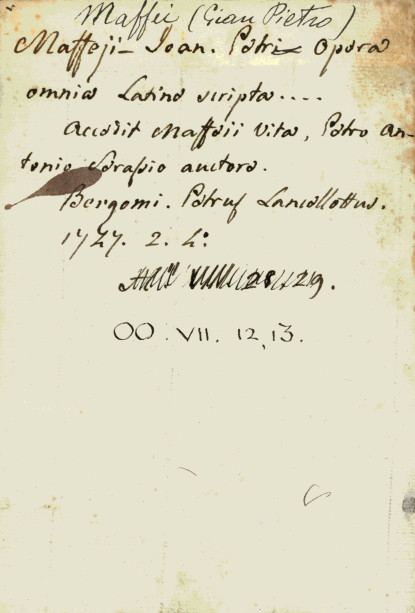 Maffei (Gian Pietro)
Maffeji - Joan. Petri Opera
omnia Latine scripta....
Accedit Maffeii Vita, Petro An-
tonio Serassio auctore.
Bergomi. Petrus Lancellottus.
1747. 2. 4.°
28 29.
OO. VII. 12, 13.